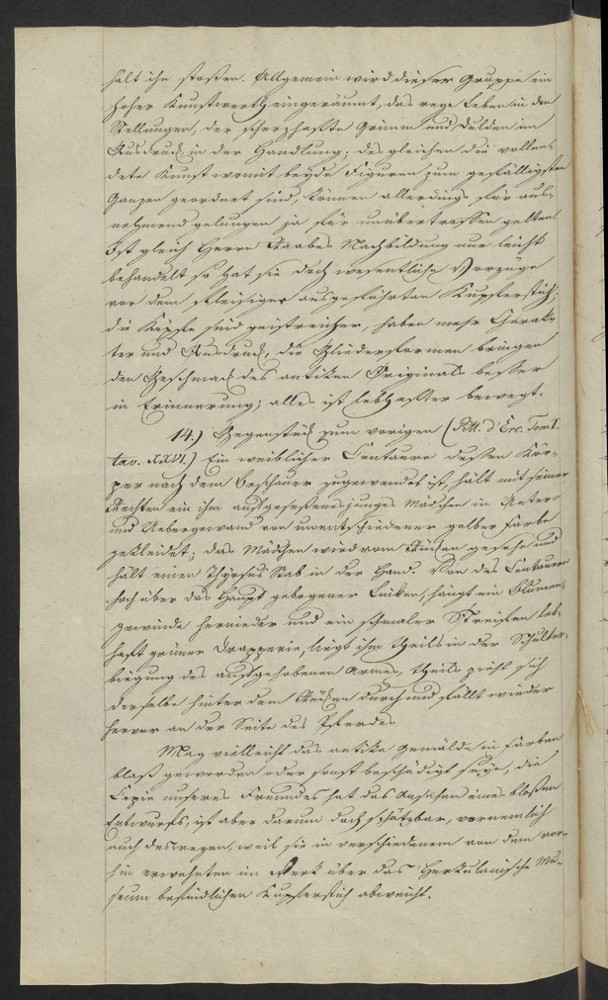 hält ihn stoßen. Allgemein wird dieser Gruppe ein
hoher Kunstwerth eingeräumt, das rege Leben in den
Stellungen, der scherzhafte Grimm und Dulden im
Ausdruck in der Handlung; des gleichen die vollen-
dete Kunst womit beyde Figuren zum gefälligsten
Ganzen geordnet sind, können allerdings für aus-
nehmend gelungen ja für unübertroffen gelten.
Ist gleich Herrn Raabes Nachbildung nur leicht
behandelt so hat sie doch wesentliche Vorzüge
vor dem fleißiger ausgeführten Kupferstich;
die Köpfe sind geistreicher, haben mehr Charak-
ter und Ausdruck, die Gliederformen bringen
den Geschmack des antiken Originals besser
in Erinnerung; alles ist lebhafter bewegt.
14.) Gegenstück zum vorigen (Pitt. d'Erc. Tom I.
tav. XXVI.) Ein weiblicher Centaure dessen Kör-
per nach dem Beschauer zugewendet ist, hält mit seiner
Rechten ein ihm aufgesessenes junges Mädchen in Unter-
und Uebergewand von unentschiedener gelber Farbe
gekleidet; das Mädchen wird vom Rücken gesehen und
hält einen Thyrsus Stab in der Hand. Von des Centauren
hoch über das Haupt gebogener Linken, hängt ein Blumen-
gewinde hernieder und ein schmaler Streifen leb-
haft grüner Drapperie, liegt ihm theils in der Schulter-
biegung des aufgehobenen Armes, theils zieht sich
derselbe hinter dem Rücken durch und fällt wieder
hervor an der Seite des Pferdes
Mag vielleicht das antike Gemälde in Farben
blaß geworden oder sonst beschädigt seye, die
Copie unseres Freundes hat das Ansehen eines bloßen
Entwurfs, ist aber darum doch schätzbar, vornemlich
auch deswegen, weil sie in verschiedenem von dem vor-
hin erwehnten im Werk über das Herkulanische Mu-
seum befindlichen Kupferstich abweicht.